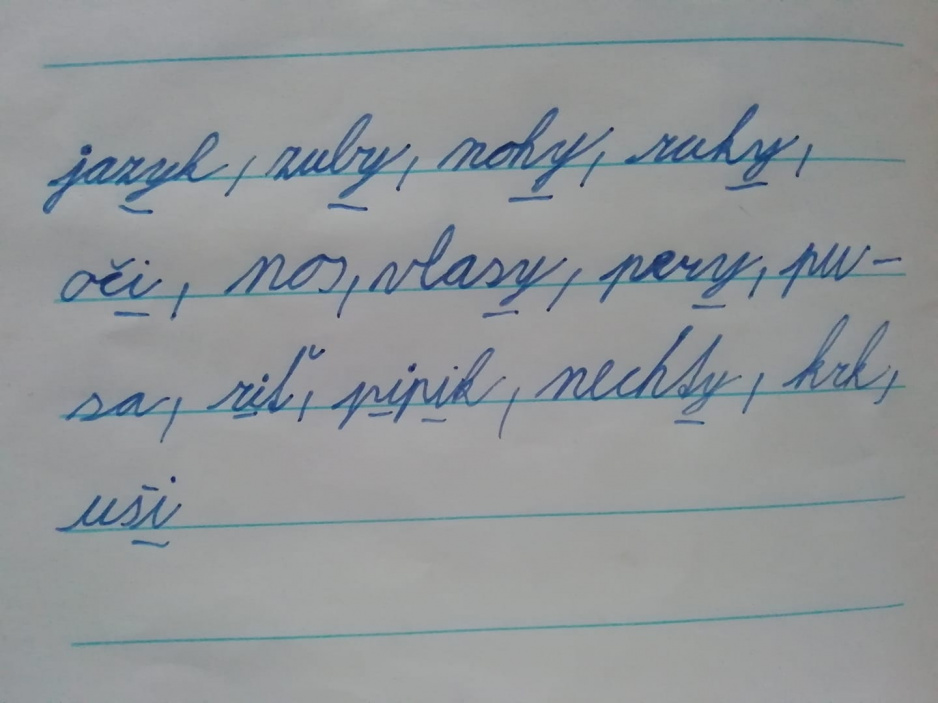 jazyk, zuby, nohy, ruky,
oči, nos, vlasy, pery, pu-
sa, riť, pipik, nechty, krk,
uši